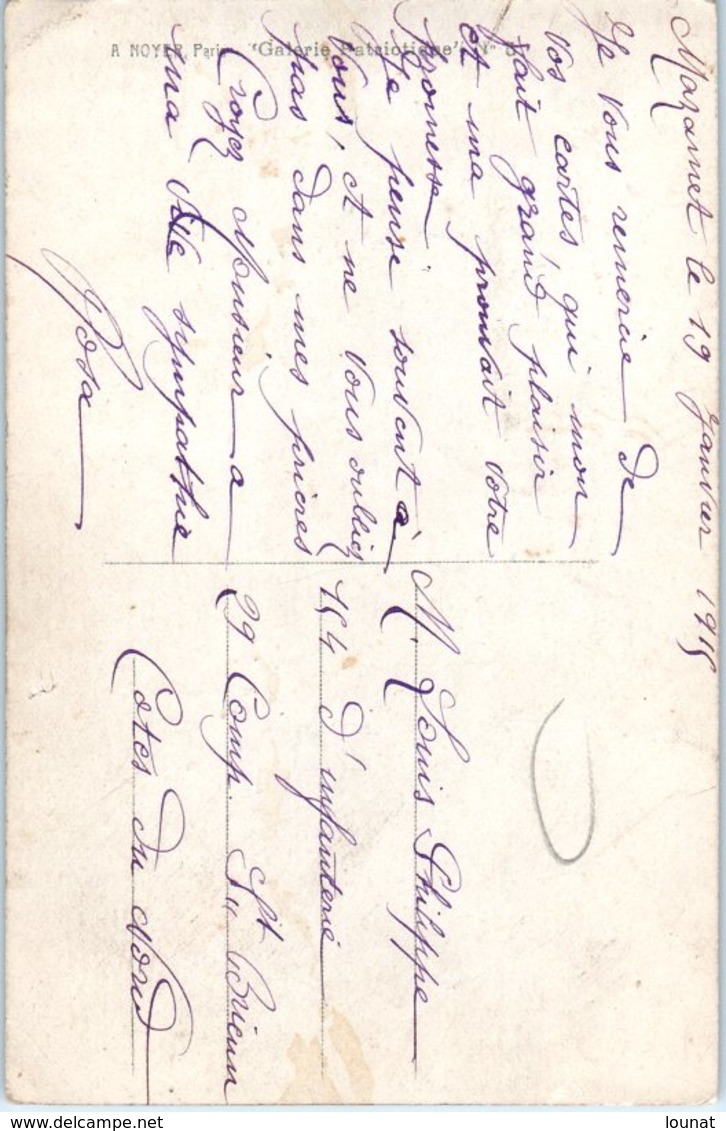 Mazamet le 19 Janvier 1915
Je vous remercie de
vos cartes, qui mon
fait grand plaisir
et ma prouvait votre
promesse
Je pense souvent à
Vous, et ne vous oubliez
pas dans mes prières
Croyez Monsieur a
ma sympathie
Rosa
M. Louis Philippe
154 d'infanterie
29 Comp. St Brieuc
Côtes du Nord
A NOYER, Paris "Galerie Patriotique" N°
lounat